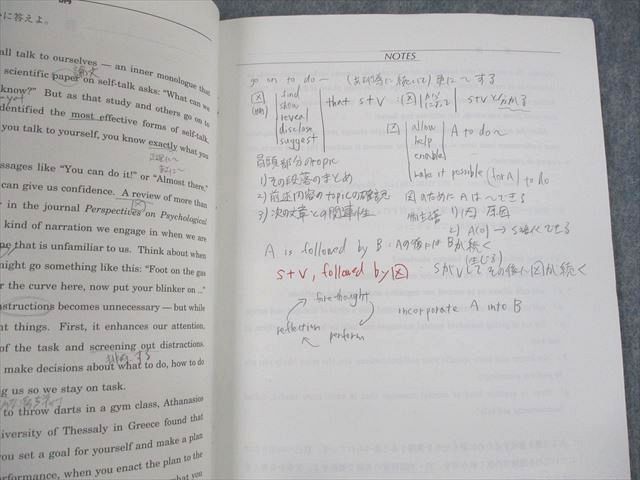 に答えよ。
all talk to ourselves — an inner monologue that
論文
scientific paper on self-talk asks: "What can we
know?" But as that study and others go on to
identified the most effective forms of self-talk.
you talk to yourself, you know exactly what you
正確に〜
messages like "You can do it!" or "Almost there,"
can give us confidence. A review of more than
r in the journal Perspectives on Psychological
kind of narration we engage in when we are
that is unfamiliar to us. Think about when
might go something like this: "Foot on the gas
r the curve here, now put your blinker on ..."
instructions becomes unnecessary — but while
nt things. First, it enhances our attention,
of the task and screening out distractions.
make decisions about what to do, how to do
ng us so we stay on task.
to throw darts in a gym class, Athanasios
University of Thessaly in Greece found that
you set a goal for yourself and make a plan
performance, when you enact the plan to the
what you
NOTES
go on to do 〜 更に〜する
find
show
reveal
disclose
suggest
that S+V
S+Vと分かる
allow
help
enable
A to do〜
make it possible (for A) to do
冒頭部分のtopic
1) その段落のまとめ
2) 前述内容のtopicの確認
3) 次の文章との関連性
因のためにAは〜できる
1) 因：原因
2) A(O) → S
A is followed by B : Aの後にはBが続く
(生じる)
S+V, followed by 図 : SがVしてその後に図が続く
forethought
reflection
perform
incorporate A into B